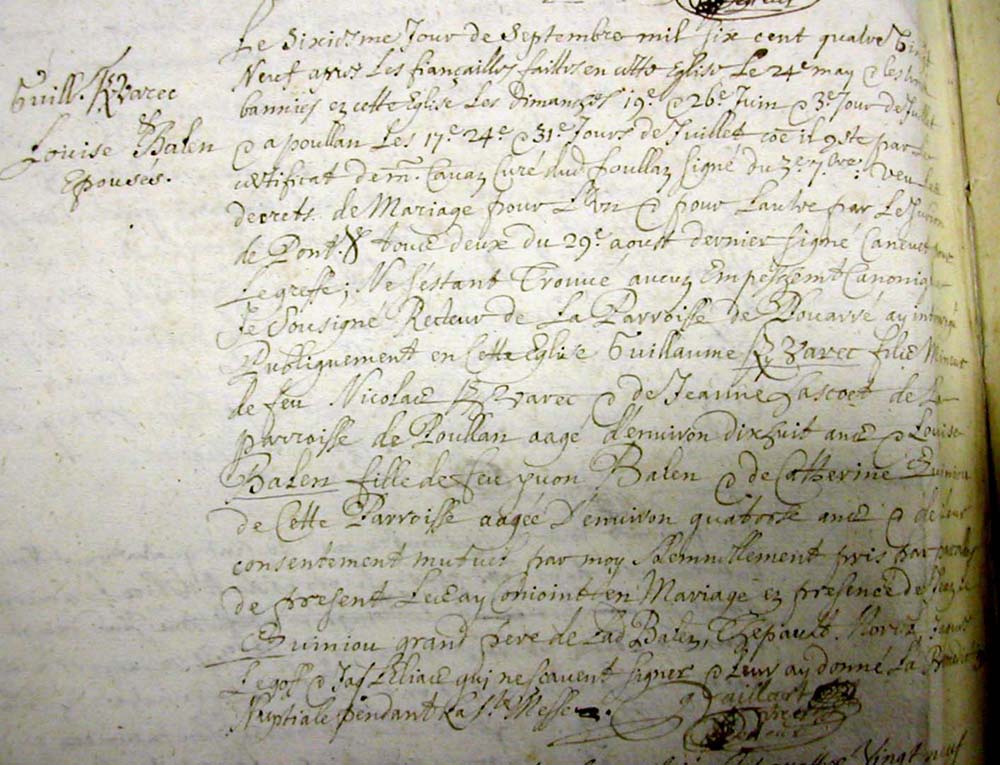 Guill. Kvarec
Louise Balen
Epouses.
Le Sixiesme Jour de Septembre mil six cent quatre Vingt
Neuf apres Les fiançailles faittes en cette Eglise Le 24e may & les
bannies en cette Eglise Les Dimanches 19e & 26e Juin & 3e Jour de Juillet
& a poullan Les 17e 24e & 31e Jours de Juillet coe il 9ste par le
certificat de mr. Curé dud poullan signé du 3e 7bre: veu les
decrets de Mariage pour L'un & pour Lautre par
de Pont. tous deux du 29e aoust dernier signé Canevet pour
Le greffe; Ne s'estant Trouvé aucun Empeschemt Canonique
Je Sousigné Recteur de La Parroisse de Ploaré ay
Publiquement en Cette Eglise Guillaume Kvarec filz Mineur
de feu Nicolas Kvarec & de Jeanne Lascoet de La
parroisse de Poullan aagé d'environ dixhuit ans & Louise
Balen fille de feu yvon Balen & de Catherine Quiniou
de Cette Parroisse aagée D'environ quatorse ans & de leur
consentement mutuel par moy solemnellement pris par paroles
de present Les ay Conioint en Mariage en presence de
Quiniou grand pere de Lad Balen, Thepault
Le goff & Jaq qui ne scavent signer & Leur ay donné La
Nuptiale pendant La Ste Messe.
Vingt neuf